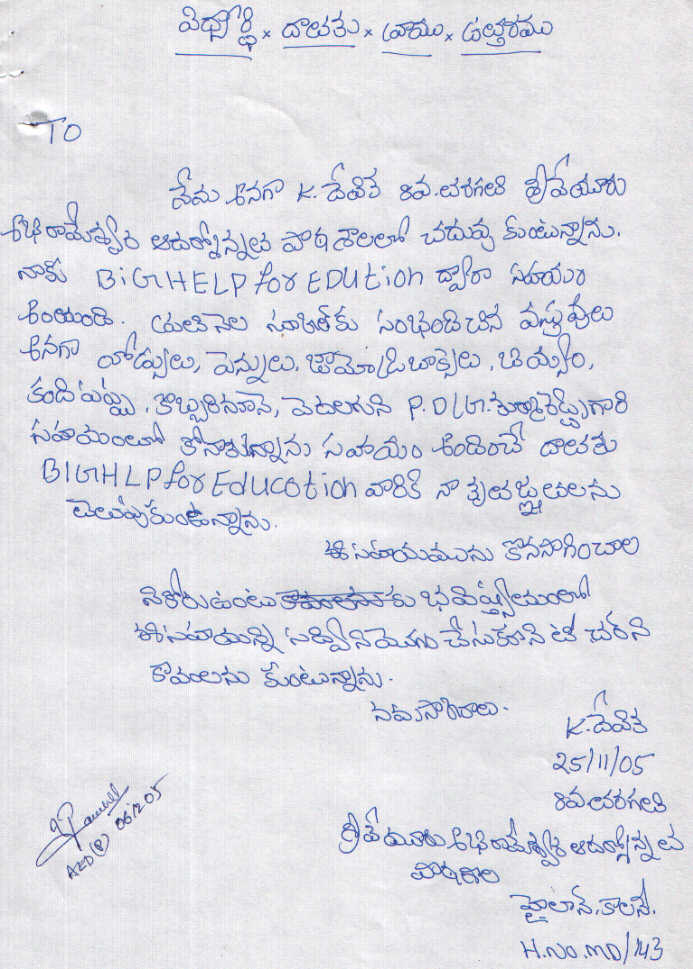 విద్యార్థి × దాతకు × వ్రాయు × ఉత్తరము
TO
నేను అనగా K. దేవికే 8వ.తరగతి శ్రీవేయూరు
ఉభ రామేశ్వర ఆదర్శోన్నత పాఠశాలలో చదువు కుంటున్నాను.
నాకు BiG HELP for EDUtion ద్వారా సహాయం
అందింది. ప్రతి నెల స్కూల్‌కు సంభందించిన వస్తువులు
అనగా నోట్సులు, పెన్నులు, జామెట్రి బాక్సులు, బియ్యం,
కందిపప్పు, కొబ్బరినూనె, మొదలగునవి P.D/G. గారి
సహాయంలో సహాయం అందించే దాతకు
BIGHLP for Education వారికి నా కృతజ్ఞతలను
తెలుపుకుంటున్నాను.
ఈ సహాయమును కొనసాగించాల
ని కోరుకుంటు భవిష్యత్తులో
ఈ సహాయాన్ని సద్వినియోగం చేసుకొని టీచర్‌ని
కావాలను కుంటున్నాను.
నమస్కారాలు.
K. దేవికే
25/11/05
8వ తరగతి
శ్రీవేయూరు ఉభరామేశ్వర ఆదర్శోన్నత
పాఠశాల
హైలానే. కాలనీ.
H.No. MD/143
06/12/05